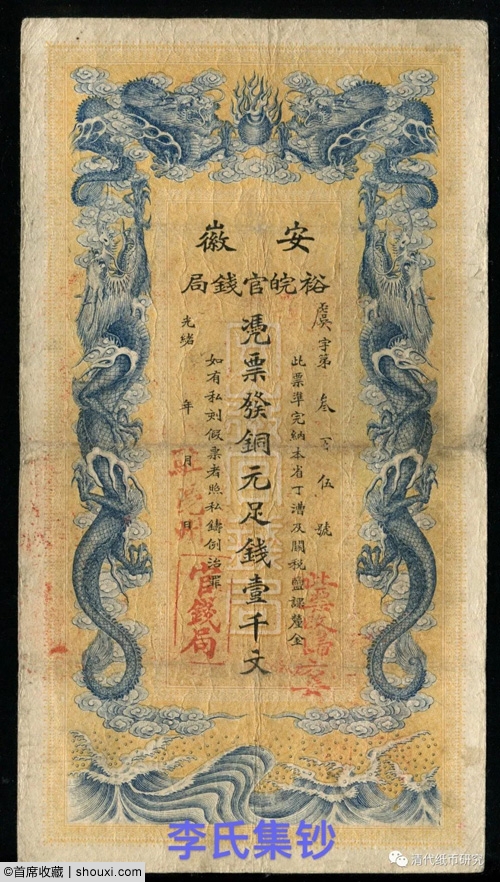 安徽
裕皖官錢局
虞字第叁百伍號
此票準完納本省丁漕及關稅鹽課釐金
憑票發銅元足錢壹千文
如有私刻假票者照私鑄例治罪
光緒 年 月 日
官錢局
此票改
李氏集钞
清代纸币研究
@首席收藏 | shouxi.com